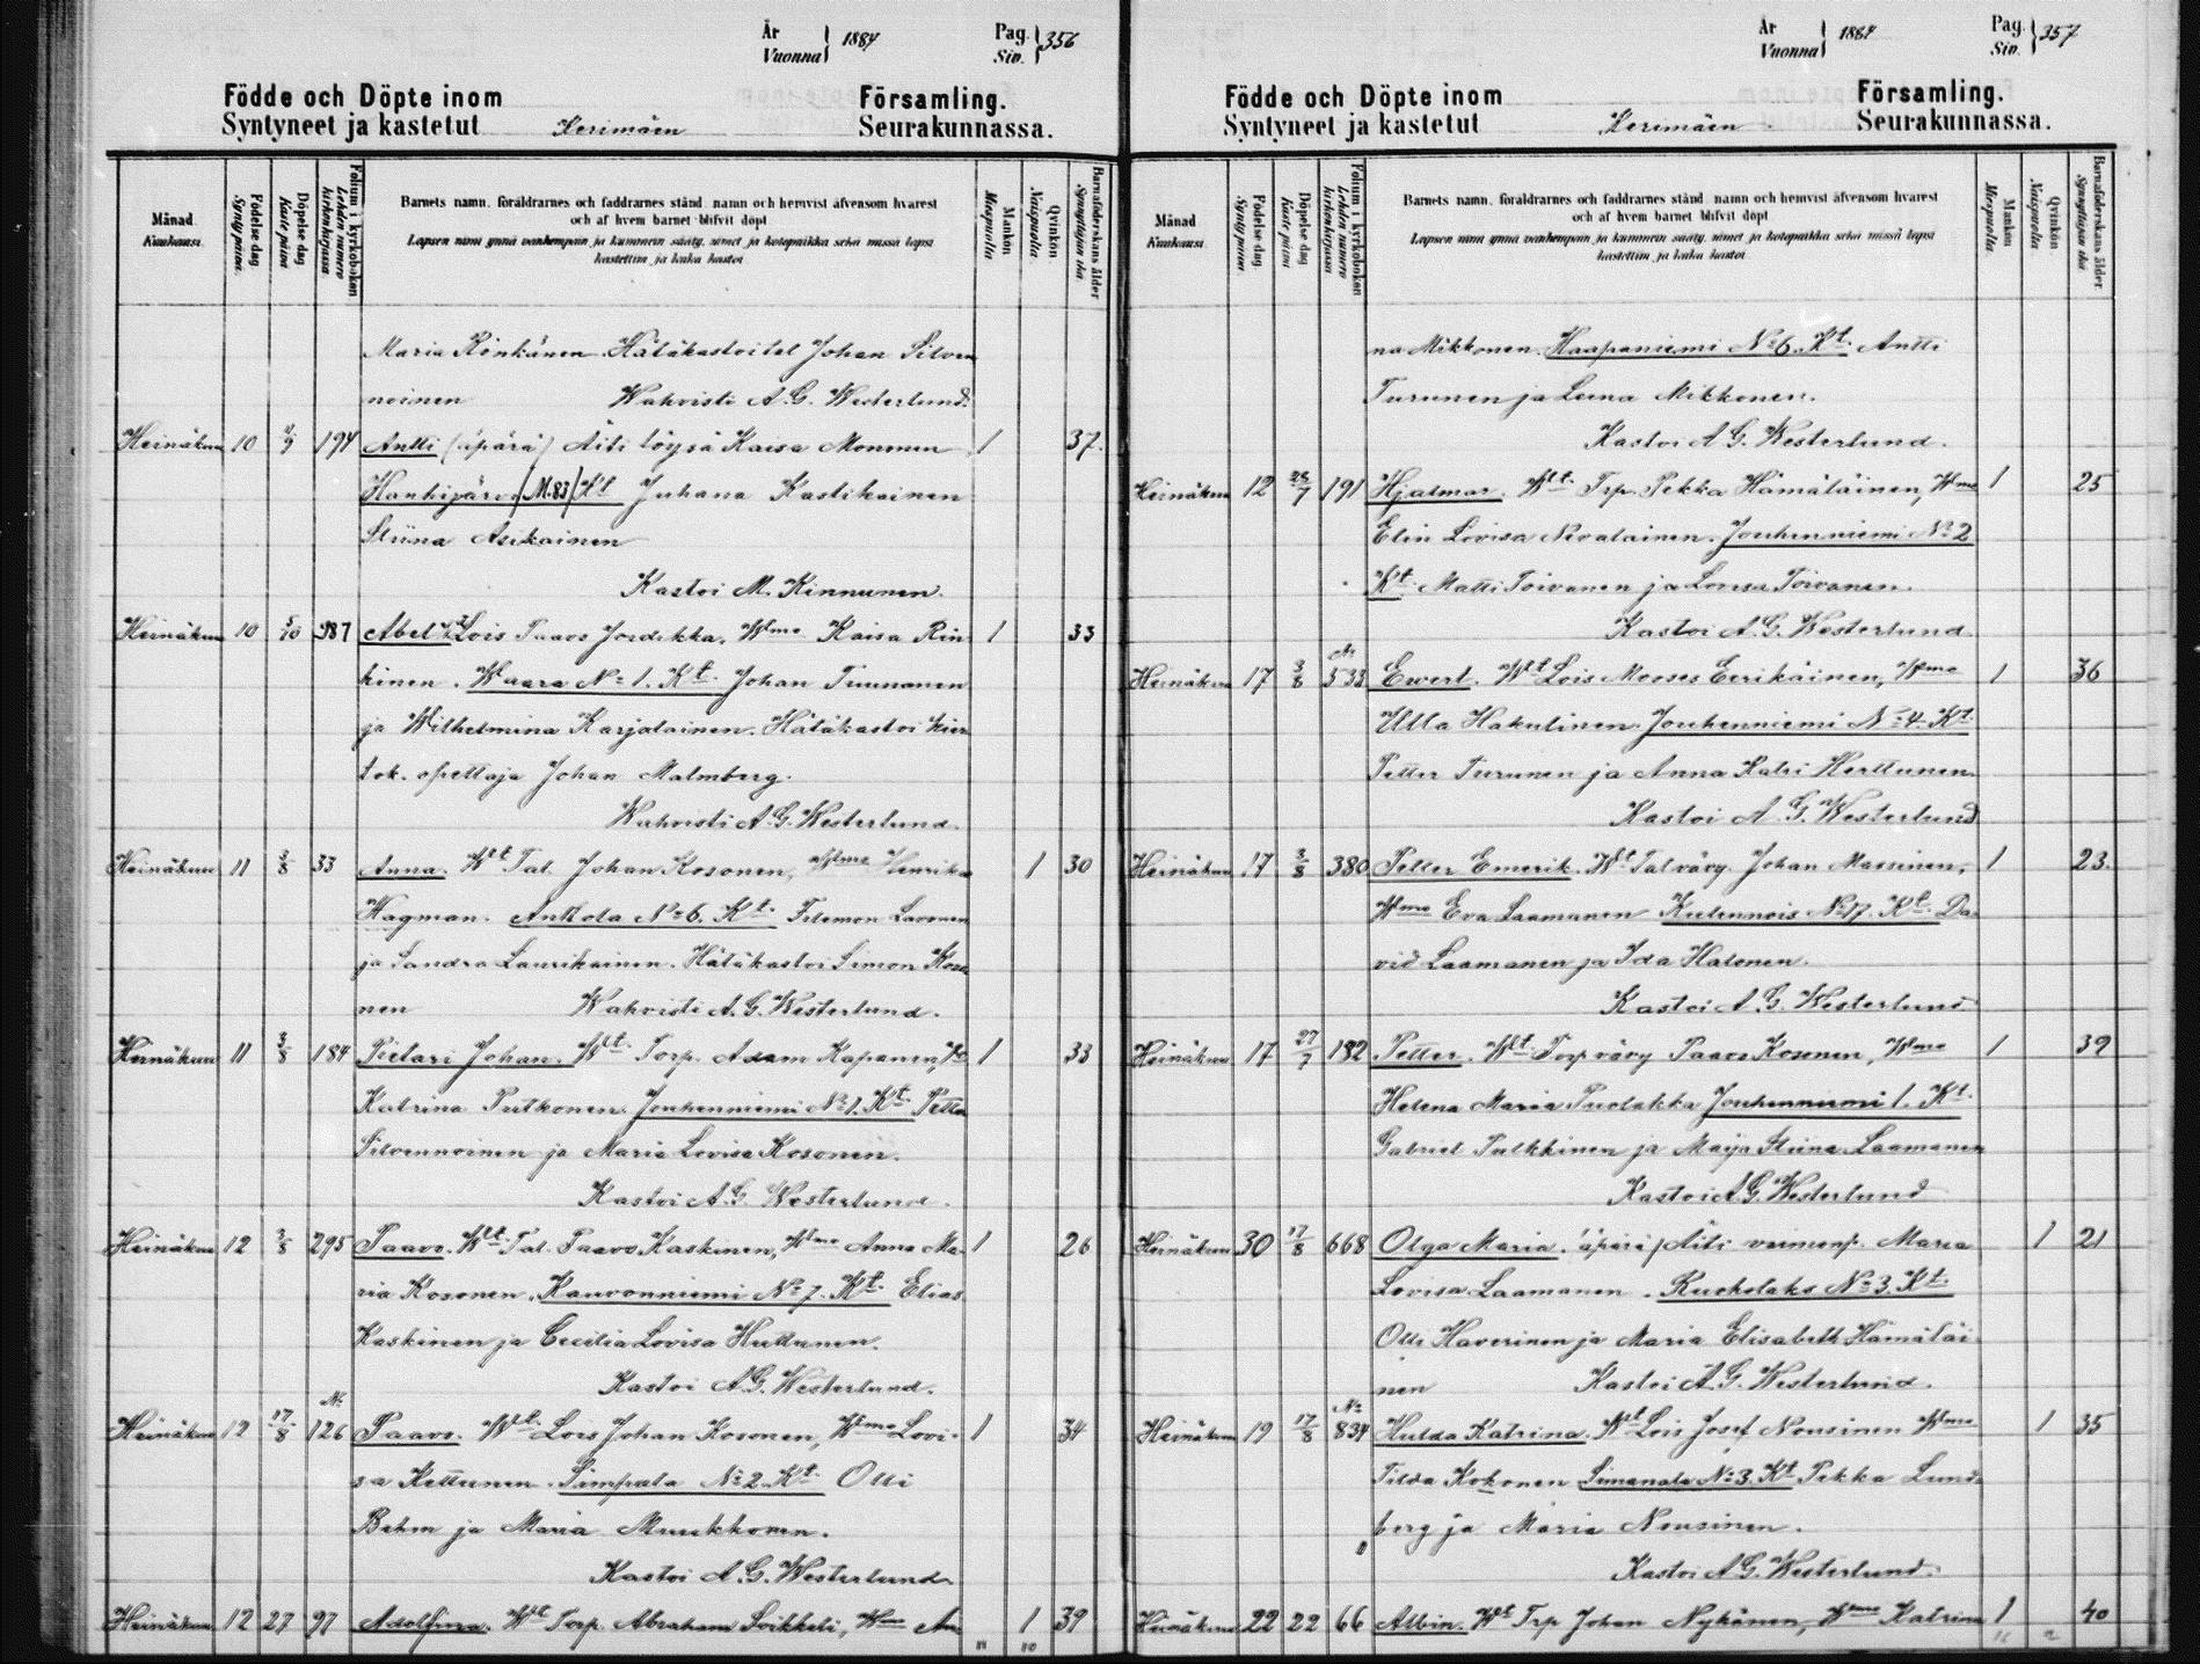 År
Vuonna } 1884
Pag.
Siv. } 356
Födde och Döpte inom
Syntyneet ja kastetut Kerimäen
Församling.
Seurakunnassa.
Månad
Kuukausi.
Födelse dag
Synty päivä.
Döpelse dag
Kaste päivä
Folium i kyrkoboken
Lehden numero kirkonkirjassa
Barnets namn, föräldrarnes och faddrarnes stånd, namn och hemvist äfvensom hvarest
och af hvem barnet blifvit döpt
Lapsen nimi ynnä vanhempain ja kummein sääty, nimet ja kotopaikka sekä missä lapsi
kastettiin ja kuka kastoi
Mankön
Miespuolia
Qvinkön
Naispuolia
Barnaföderskans ålder
Synnyttäjän ikä
Maria Rönkänen. Hätäkastoitet Johan Silven
noinen Wahvisti A.G. Westerlund.
Heinäkuu 10 11/9 194 Antti (äpärä) Äiti löysä Kaisa Mononen 1 37.
Hanhijärvi (M.83) Kt Juhana Kastikainen
Stiina Asikainen
Kastoi M. Kinnunen.
Heinäkuu 10 5/10 387 Abel Wt Lois Paavo Jordikka, Wmo Kaisa Rin 1 33
kinen. Waara No 1. Kt. Johan Tiunanen
ja Wilhelmina Karjalainen. Hätäkastoi kier
tok. opettaja Johan Malmberg.
Wahvisti A.G. Westerlund.
Heinäkuu 11 3/8 33 Anna. Wt Tal. Johan Kosonen, Wmo Henrika 1 30
Hagman. Anttola No 6. Kt. Filemon Lavonen
ja Sandra Laurikainen. Hätäkastoi Simon Koso
nen Wahvisti A.G. Westerlund.
Heinäkuu 11 3/8 184 Pietari Johan. Wt. Torp. Adam Kapanen, Wo 1 33
Katrina Putkonen. Jouhenniemi No 1. Kt. Petter
Silvennoinen ja Maria Lovisa Kosonen.
Kastoi A.G. Westerlund.
Heinäkuu 12 3/8 295 Paavo. Wt. Tal. Paavo Kaskinen, Wmo Anna Ma- 1 26
ria Kosonen. Kauvonniemi No 7. Kt. Elias
Kaskinen ja Cecilia Lovisa Huttunen.
Kastoi A.G. Westerlund.
Heinäkuu 12 17/8 N. 126 Paavo. Wt. Lois Johan Kosonen, Wmo Lovi- 1 34
sa Kettunen. Simpala No 2. Kt. Olli
Behm ja Maria Muukkonen.
Kastoi A.G. Westerlund.
Heinäkuu 12 27 97 Adolfina. Wt Torp. Abraham Loikkeli, Wmo An 1 39
11 10
År
Vuonna } 1884
Pag.
Siv. } 357
Födde och Döpte inom
Syntyneet ja kastetut Kerimäen
Församling.
Seurakunnassa.
Månad
Kuukausi
Födelse dag
Synty päivä
Döpelse dag
Kaste päivä
Folium i kyrkoboken
Lehden numero kirkonkirjassa
Barnets namn, föräldrarnes och faddrarnes stånd, namn och hemvist äfvensom hvarest
och af hvem barnet blifvit döpt
Lapsen nimi ynnä vanhempain ja kummein sääty, nimet ja kotopaikka sekä missä lapsi
kastettiin ja kuka kastoi
Mankön
Miespuolia
Qvinkön
Naispuolia
Barnaföderskans ålder
Synnyttäjän ikä
na Mikkonen. Haapaniemi No 6. Kt. Antti
Turunen ja Leena Mikkonen.
Kastoi A.G. Westerlund.
Heinäkuu 12 23/7 191 Hjalmar. Wt. Trp. Pekka Hämäläinen, Wmo 1 25
Elin Lovisa Nivalainen. Jouhenniemi No 2
Kt. Matti Toivanen ja Lovisa Toivanen.
Kastoi A.G. Westerlund
Heinäkuu 17 3/8 N. 533 Ewert. Wt Lois Mooses Eerikäinen, Wmo 1 36
Ulla Hakulinen. Jouhenniemi No 4. Kt.
Petter Turunen ja Anna Katri Herttunen.
Kastoi A.G. Westerlund
Heinäkuu 17 3/8 380 Petter Emerik. Wt Tal vävy. Johan Massinen, 1 23.
Wmo Eva Laamanen Kulennois No 17. Kt. Da-
vid Laamanen ja Ida Halonen.
Kastoi A.G. Westerlund
Heinäkuu 17 27/7 182 Petter. Wt. Torp vävy Paavo Kosonen, Wmo 1 39
Helena Maria Puolakka Jouhenniemi 1. Kt.
Gabriel Pulkkinen ja Maija Stiina Laamanen
Kastoi A.G. Westerlund
Heinäkuu 30 17/8 668 Olga Maria. äpärä/ Äiti vaimonp. Maria 1 21
Lovisa Laamanen. Ruokolaks No 3. Kt.
Olli Haverinen ja Maria Elisabeth Hämäläi
nen Kastoi A.G. Westerlund.
Heinäkuu 19 17/8 No 834 Hulda Katrina. Wt Lois Josef Nousinen Wmo 1 35
Tilda Kokonen Simanala No 3. Kt Pekka Lund-
berg ja Maria Nousinen.
Kastoi A.G. Westerlund.
Heinäkuu 22 22 66 Albin. Wt Trp Johan Nykänen, Wmo Katrin 1 40
11 2